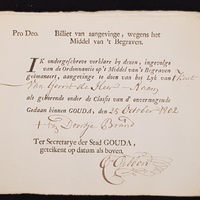 Pro Deo. Billet van aangevinge, wegens het
Middel van 't Begraven.
IK ondergeschreve verklare by dezen, ingevolge
van de Ordonnantie op 't Middel van 't Begraven
geëmaneert, aangevinge te doen van het Lyk van 't Kint
van Gerrit de Heer
als gehorende onder de Classis van d' onvermogende
Gedaan binnen GOUDA, den 25 October 1802
Ter Secretarye der Stad GOUDA,
geteikent op datum als boven.